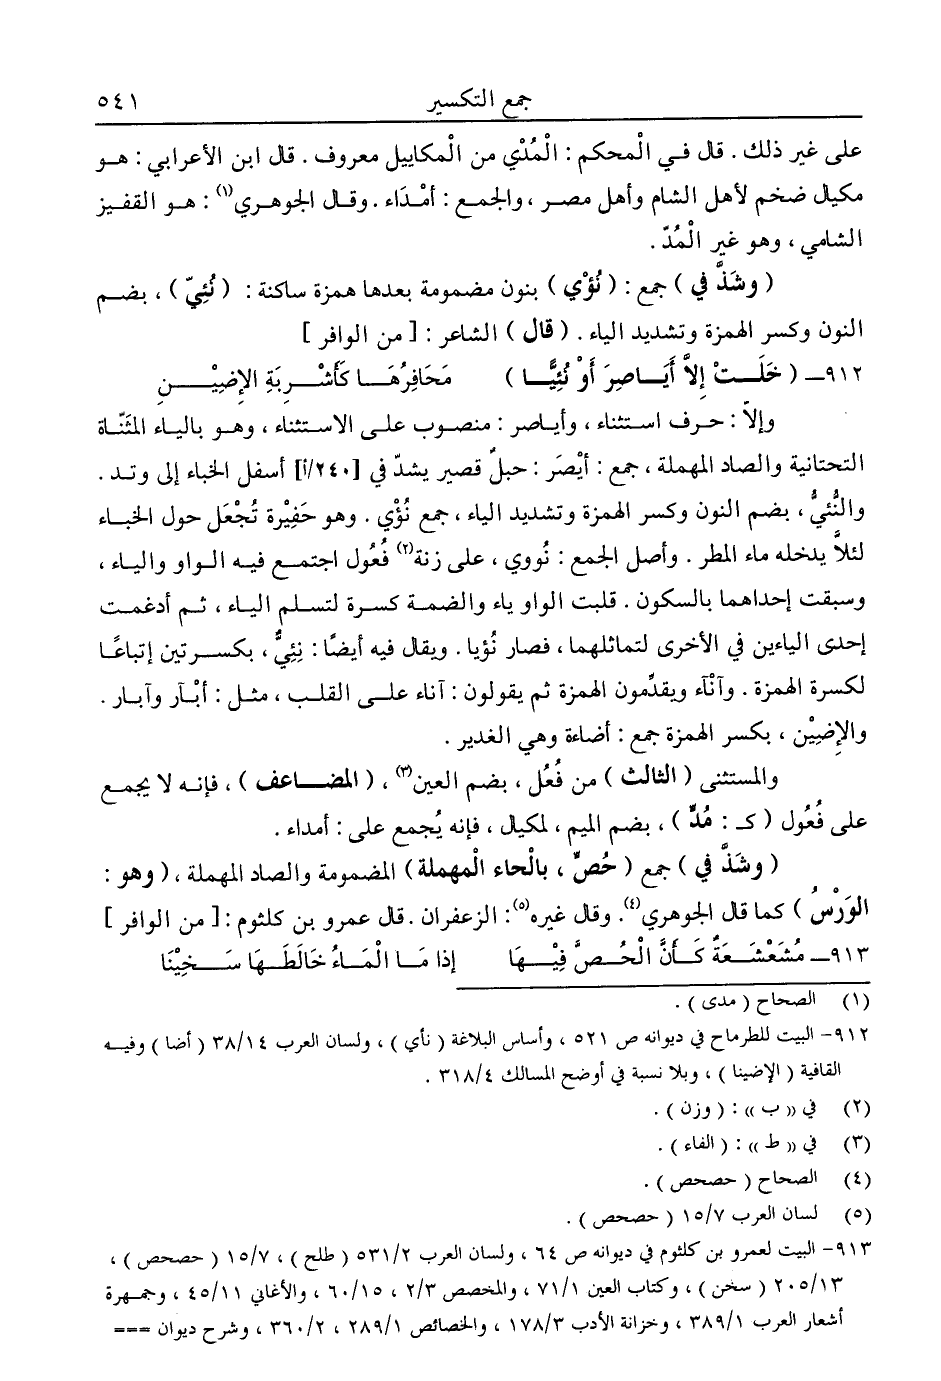 جمع التكسير ٥٤١
على غير ذلك . قال في الْمحكم : الْمُدْي من الْمكاييل معروف . قال ابن الأعرابي : هو
مكيال ضخم لأهل الشام وأهل مصر ، والجمع : أمْدَاء . وقال الجوهري(١) : هو القفيز
الشامي ، وهو غير الْمُدّ .
( وشَذَّ في ) جمع : ( نُؤْي ) بنون مضمومة بعدها همزة ساكنة : ( نُئِيّ ) ، بضم
النون وكسر الهمزة وتشديد الياء . ( قال ) الشاعر : [ من الوافر ]
٩١٢ـ ( خَلَتْ إلاَّ أَيَاصِرَ أَوْ نُئِيًّا ) مَحَافِرُهَا كَأَشْرِبَةِ الإضِيْنِ
وإلاّ : حرف استثناء ، وأياصر : منصوب على الاستثناء ، وهو بالياء المثَنّاة
التحتانية والصاد المهملة ، جمع : أيْصَر : حبلٌ قصير يشدّ في [٢٤٠/أ] أسفل الخباء إلى وتد .
والنُّئِيُّ ، بضم النون وكسر الهمزة وتشديد الياء ، جمع نُؤْي . وهو حَفِيْرة تُجْعَل حول الخباء
لئلاَّ يدخله ماء المطر . وأصل الجمع : نُووي ، على زنة(٢) فُعُول اجتمع فيه الواو والياء ،
وسبقت إحداهما بالسكون . قلبت الواو ياء والضمة كسرة لتسلم الياء ، ثم أدغمت
إحدى الياءين في الأخرى لتماثلهما ، فصار نُؤيا . ويقال فيه أيضًا : نِئِيٌّ ، بكسرتين إتباعًا
لكسرة الهمزة . وآنْآء ويقدِّمون الهمزة ثم يقولون : آناء على القلب ، مثل : أبْآر وآبار .
والإضِيْن ، بكسر الهمزة جمع : أضاءة وهي الغدير .
والمستثنى ( الثالث ) من فُعُل ، بضم العين(٣) ، ( المضاعف ) ، فإنه لا يجمع
على فُعُول ( كـ : مُدٍّ ) ، بضم الميم ، لمكيال ، فإنه يُجمع على : أمداء .
( وشَذَّ في ) جمع ( حُصٍّ ، بالْحاء الْمهملة ) المضمومة والصاد المهملة ، ( وهو :
الوَرْسُ ) كما قال الجوهري(٤). وقال غيره(٥): الزعفران . قال عمرو بن كلثوم : [ من الوافر ]
٩١٣ـ مُشَعْشَعَةً كَأَنَّ الْحُصَّ فِيْهَا إذا مَا الْمَاءُ خَالَطَهَا سَخِيْنَا
(١) الصحاح ( مدى ) .
٩١٢- البيت للطرماح في ديوانه ص ٥٢١ ، وأساس البلاغة ( نأي ) ، ولسان العرب ٣٨/١٤ ( أضا ) وفيه
القافية ( الإضينا ) ، وبلا نسبة في أوضح المسالك ٣١٨/٤ .
(٢) في « ب » : ( وزن ) .
(٣) في « ط » : ( الفاء ) .
(٤) الصحاح ( حصحص ) .
(٥) لسان العرب ١٥/٧ ( حصحص ) .
٩١٣- البيت لعمرو بن كلثوم في ديوانه ص ٦٤ ، ولسان العرب ٥٣١/٢ ( طلح ) ، ١٥/٧ ( حصحص ) ،
٢٠٥/١٣ ( سخن ) ، وكتاب العين ٧١/١ ، والمخصص ٢/٣ ، ٦٠/١٥ ، والأغاني ٤٥/١١ ، وجمهرة
أشعار العرب ٣٨٩/١ ، وخزانة الأدب ١٧٨/٣ ، والخصائص ٢٨٩/١ ، ٣٦٠/٢ ، وشرح ديوان ===